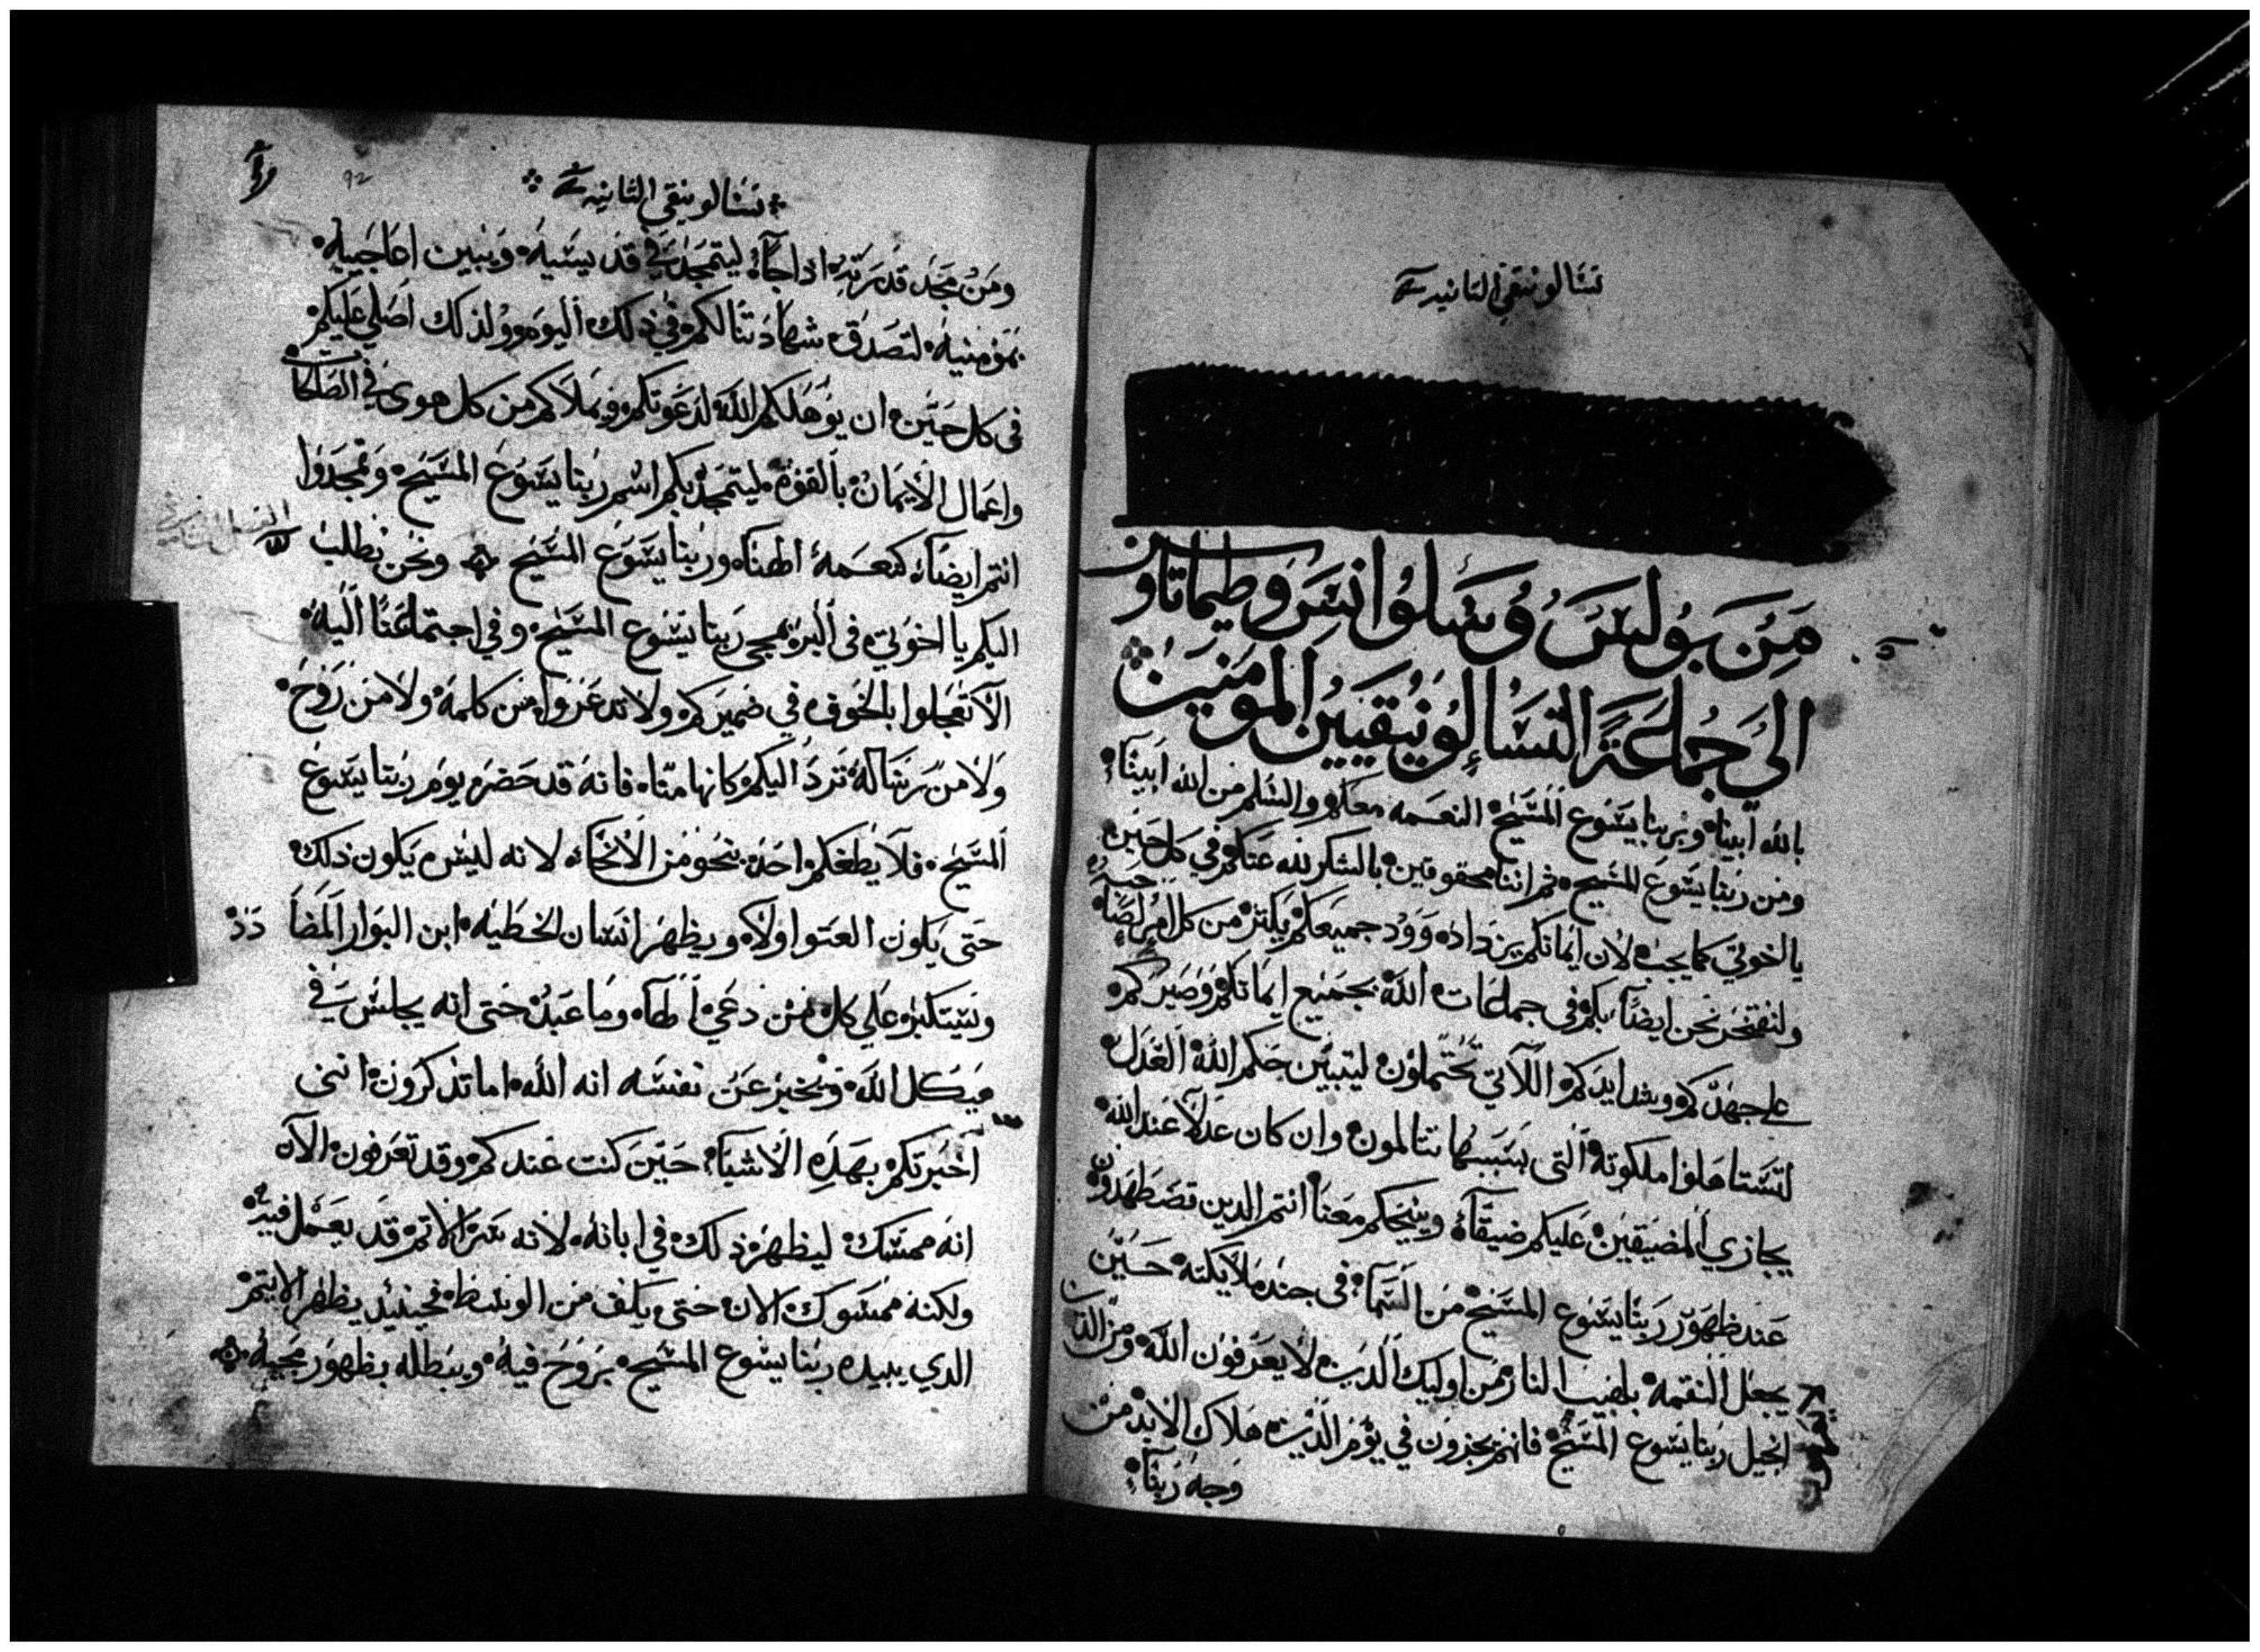 تسالونيقي الثانيه
من بولس وسلوانس وطيماتاوس
الي جماعة التسالونيقيين المومنين
بالله ابينا وبربنا يسوع المسيح النعمه معكم والسلم من الله ابينا
ومن ربنا يسوع المسيح ثم اننا محقوقين بالشكر لله عنكم في كل حين
يا اخوتي كما يجب لان ايمانكم يزداد وود جميعكم يكثر من كل امرء لصاحبه
ولنفتخر نحن ايضا بكم في جماعات الله بجميع ايمانكم وصبركم
علي جهدكم وشدايدكم اللاتي تحتملون ليتبين حكم الله العدل
لتستاهلوا ملكوته التي بسببها تتالمون وان كان عدلا عند الله
يجازي المضيقين عليكم ضيقا وينجيكم معنا انتم الدين تضطهدون
عند ظهور ربنا يسوع المسيح من السما في جند ملايكته حين
يجعل النقمه بلهيب النار من اوليك الدين لا يعرفون الله ومن الدين
انجيل ربنا يسوع المسيح فانهم يجزون في يوم الدين هلاك الابد من
وجه ربنا
تسالونيقي الثانيه
92
ومن مجد قدرته اذا جا ليتمجد في قديسيه ويبين اعاجيبه
بمومنيه لتصدق شهادتنا لكم في ذلك اليوم ولذلك اصلي عليكم
في كل حين ان يوهلكم الله لدعوتكم ويملاكم من كل هوى في الصالحات
واعمال الايمان بالقوة ليتمجد بكم اسم ربنا يسوع المسيح وتمجدوا
انتم ايضا كنعمة الهنا وربنا يسوع المسيح ونحن نطلب
اليكم يا اخوتي في البر بمجي ربنا يسوع المسيح وفي اجتماعنا اليه
الا تعجلوا بالخوف في ضميركم ولا تدعزوا من كلمة ولا من روح
ولا من رسالة ترد اليكم كانها منا فانه قد حضر يوم ربنا يسوع
المسيح فلا يطغكم احد بنحو من الانحاء لانه ليس يكون ذلك
حتى يكون العتو اولا ويظهر انسان الخطيه ابن البوار المضا
دد
ويستكبر علي كل من دعي الها وما عبد حتى انه يجلس في
هيكل الله ويخبر عن نفسه انه الله اما تذكرون انني
اخبرتكم بهذه الاشيا حين كنت عندكم وقد تعرفون الان
انه ممسك ليظهر ذلك في ابانه لانه سر الاثم قد يعمل فيه
ولكنه ممسوك الان حتى يكف من الوسط فحينيد يظهر الاثيم
الدي يبيده ربنا يسوع المسيح بروح فيه ويبطله بظهور مجيه